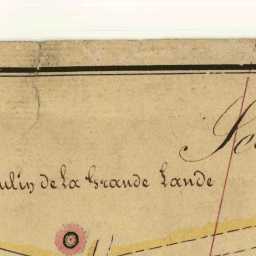 oulin de la Grande Lande